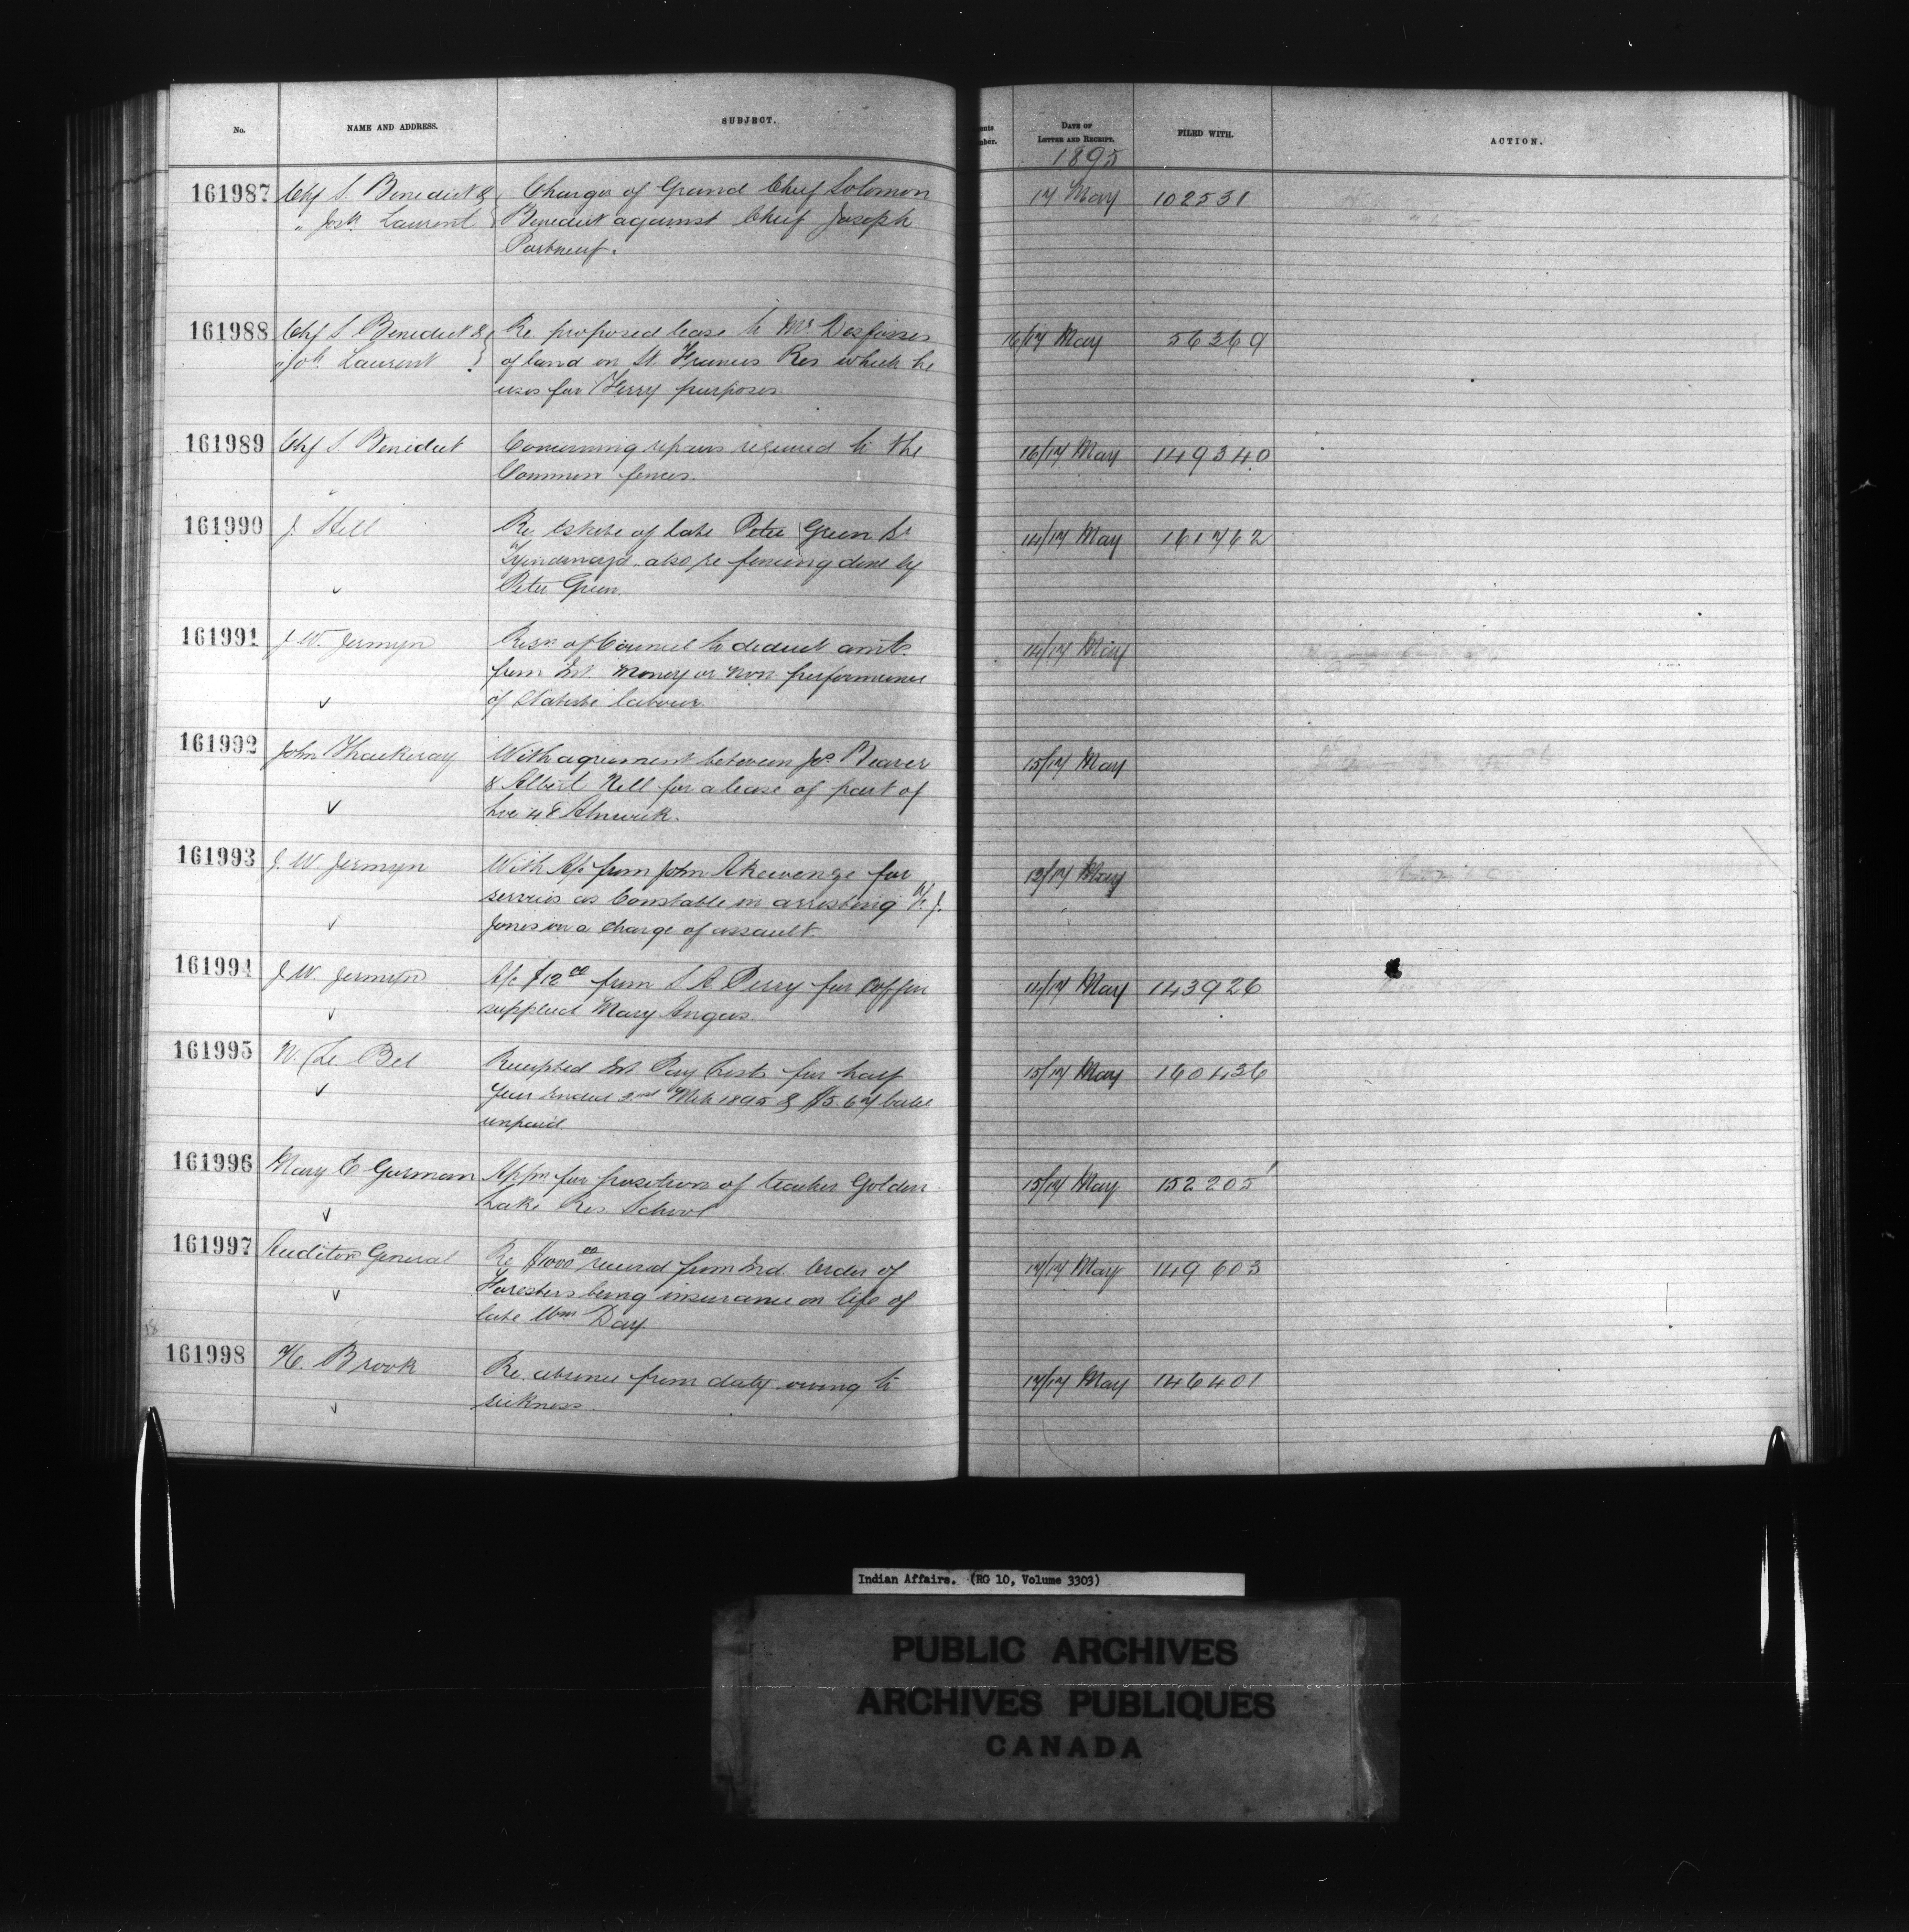 No.
NAME AND ADDRESS.
SUBJECT.
DATE OF
LETTER AND RECEIPT.
FILED WITH.
ACTION.
1895
161987 Chf S. Benedict & Charges of Grand Chief Solomon 17 May 102531
" Josh. Laurent Benedict against Chief Joseph
Portneuf.
161988 Chf S Benedict & Re proposed lease to Mr. Desfosses 16/17 May 56269
" Jos. Laurent of land on St. Francis Res which he
uses for Ferry purposes
161989 Chf S Benedict Concerning repairs required to the 16/17 May 149340
Common fences.
161990 J. Hill Re Estate of late Peter Green Sr 14/17 May 161762
Tyendinaga also re fencing done by
Peter Green.
161991 J. W. Jermyn Resn of Council to deduct amts. 14/17 May
from Int. money or non performance
of Statute labour.
161992 John Thackeray With agreement between Jos. Beaver 15/17 May
& Albert Nell for a lease of part of
Alnwick.
161993 J. W. Jermyn With A/c from John Akewenze for 13/17 May
services as Constable in arresting J.
Jones on a charge of assault.
161994 J. W. Jermyn A/c $12 00 from S A Perry for Coffin 14/17 May 143926
supplied Mary Angus.
161995 N. Le Bel Receipted Int Pay Lists for half 15/17 May 160436
year ended 1895 & $5.67 balce
unpaid.
161996 Mary E Gorman Appn for position of teacher Golden 15/17 May 152205
Lake Res. School
161997 Auditor General Re $1000 00 received from Ind. Order of 17/17 May 149603
Foresters being insurance on life of
late Wm. Day.
161998 H. Brook Re absence from duty owing to 17/17 May 146401
sickness.
Indian Affairs. (RG 10, Volume 3303)
PUBLIC ARCHIVES
ARCHIVES PUBLIQUES
CANADA